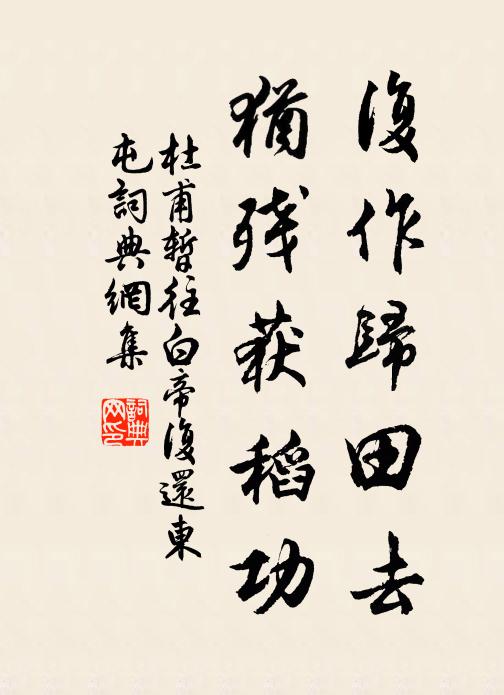 復作歸田去
猶残获稻功
杜甫暫往白帝復還東
屯詞典網集
詞典
网印